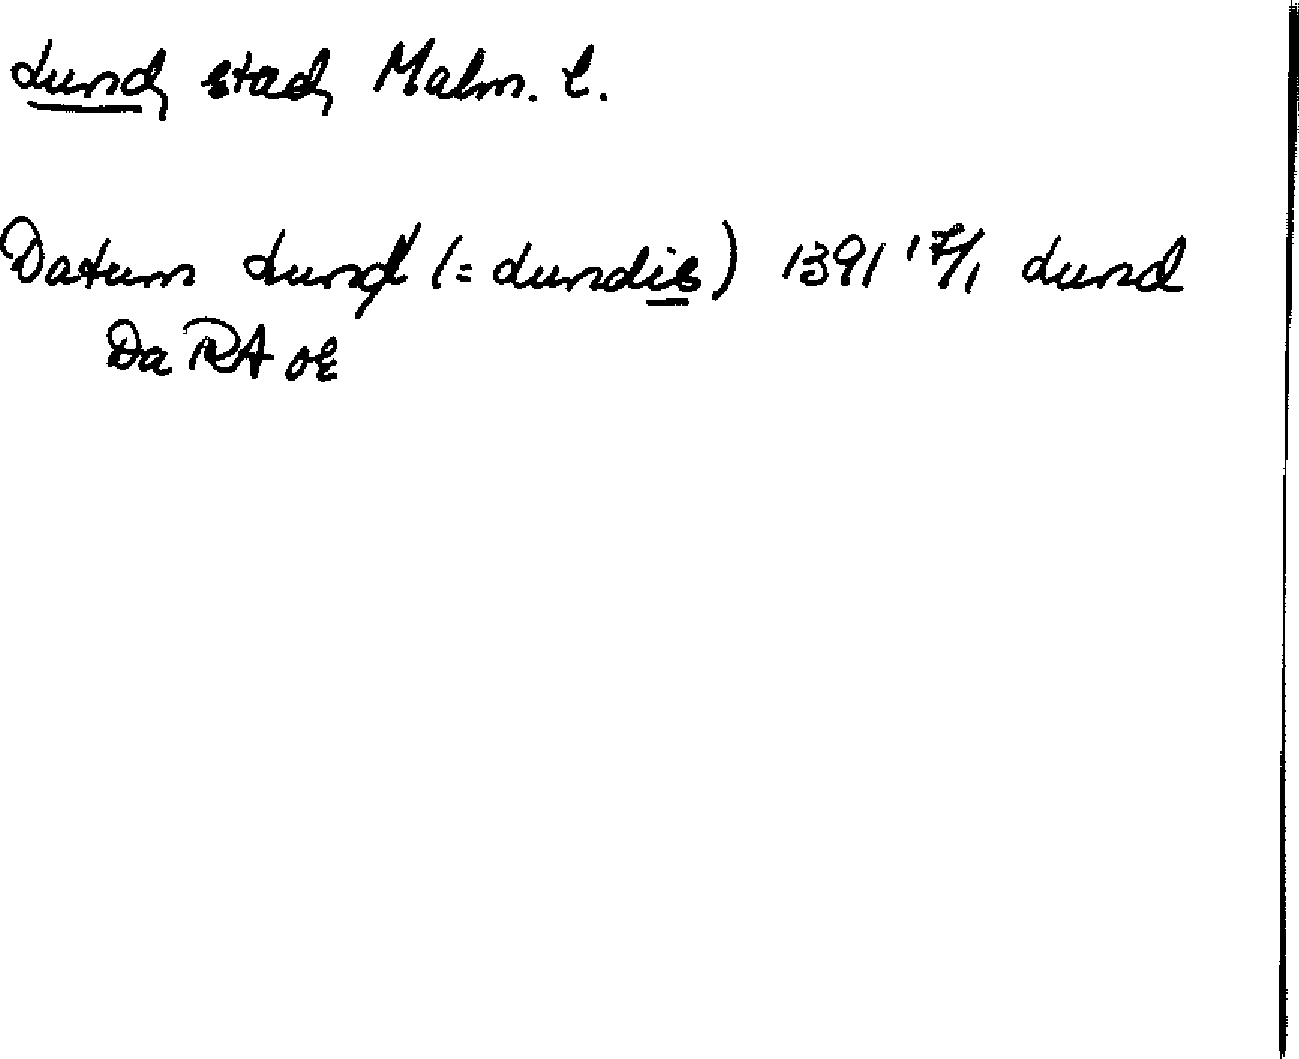 Lund, stad, Malm. l.
Datum Lund (= Lundis) 1391 17/1 Lund
Da RA or